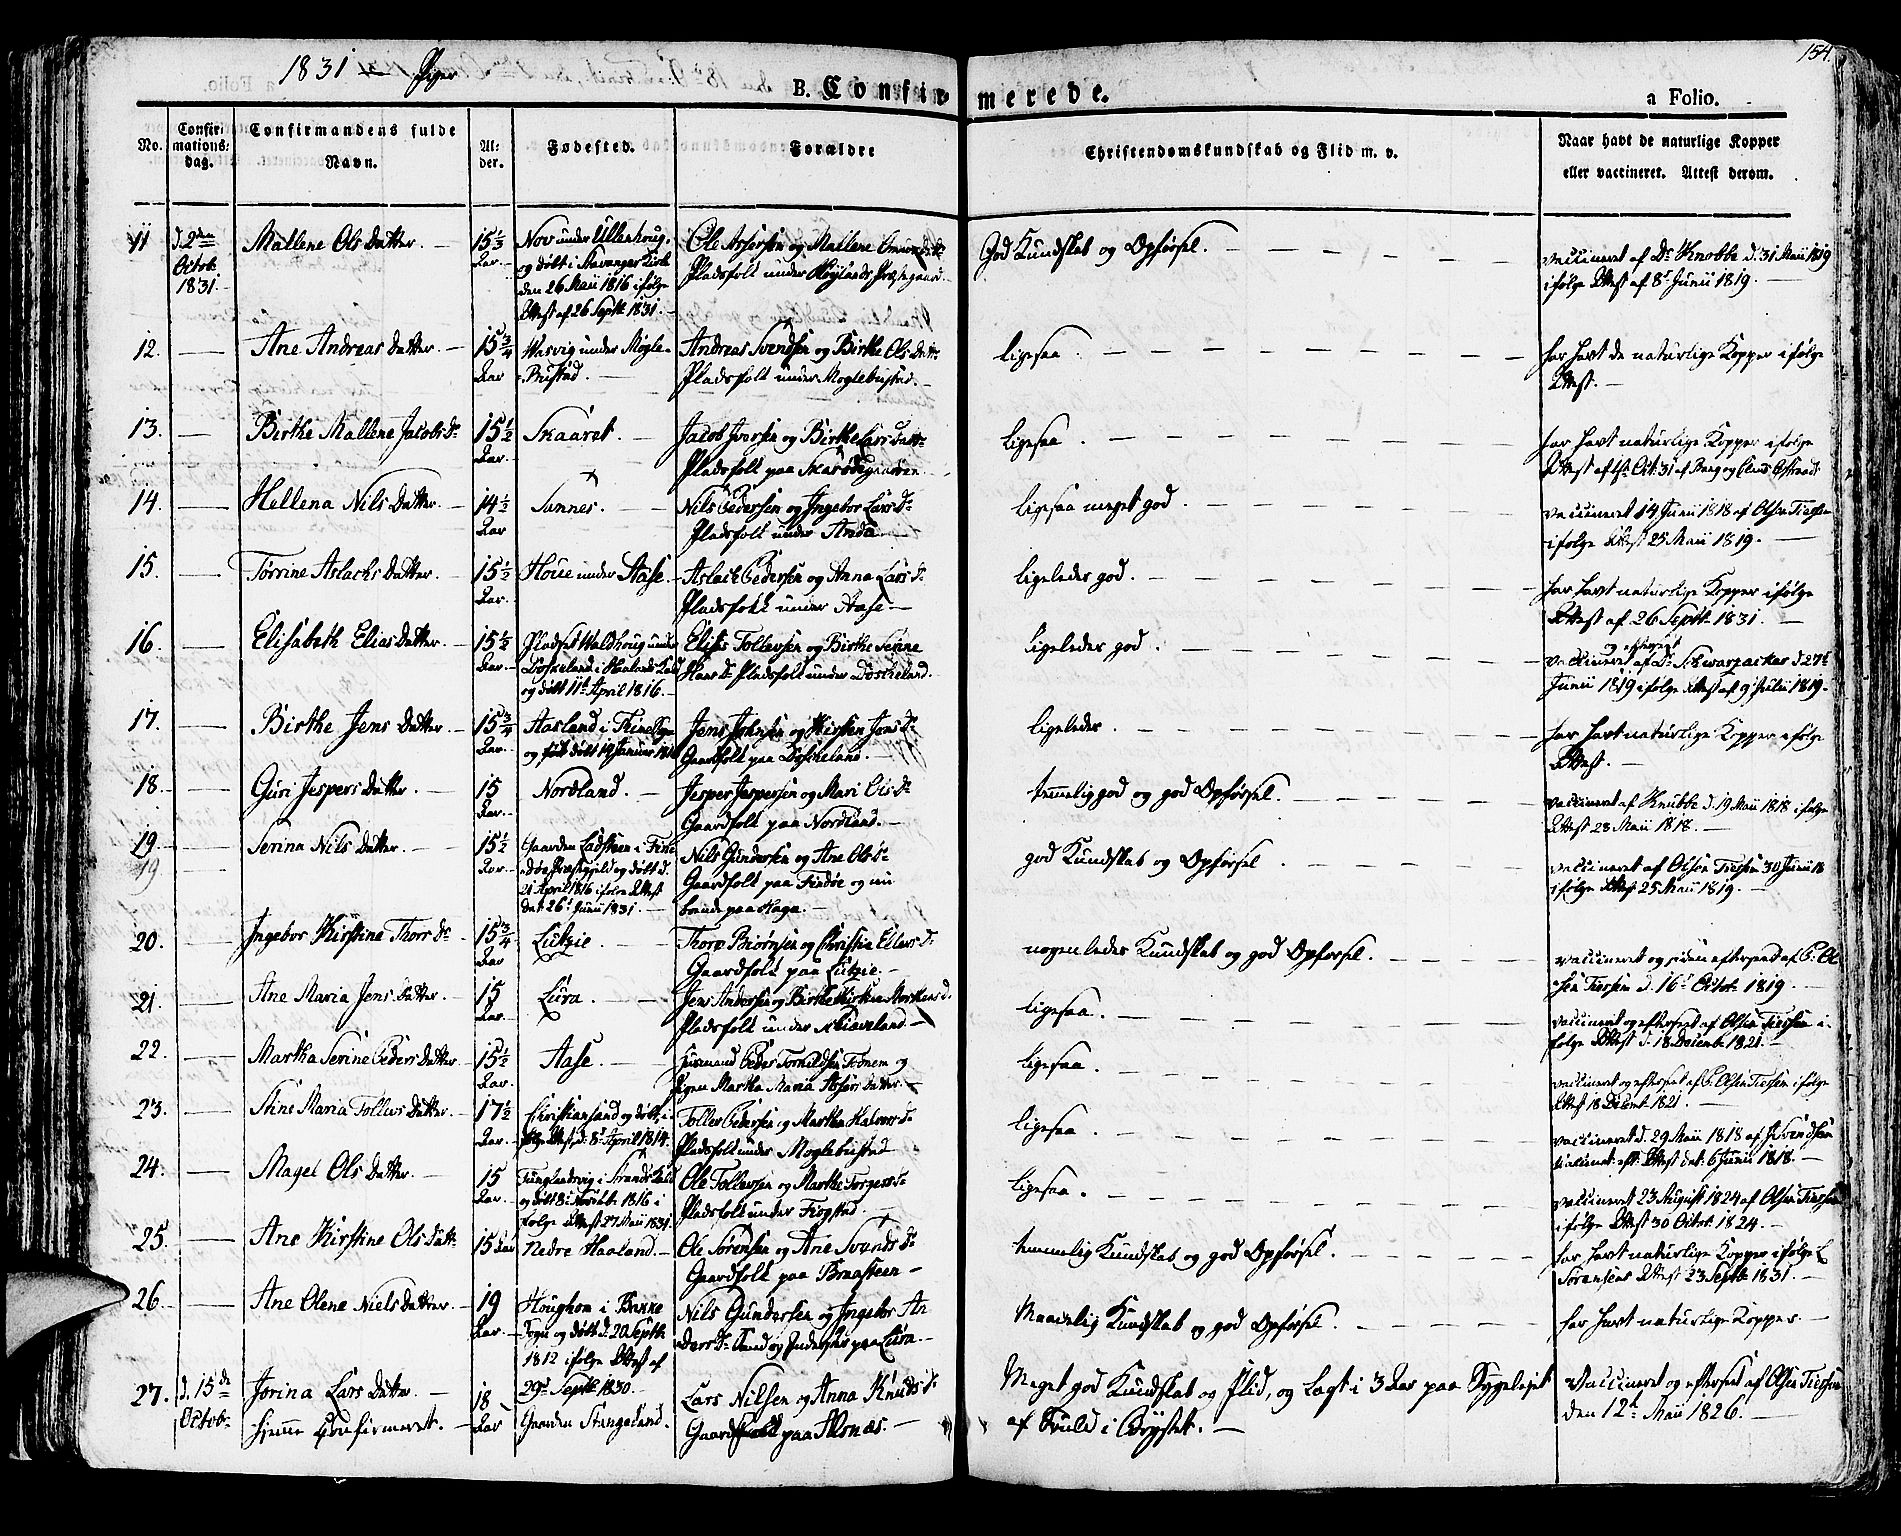 1831 Piger
B. Confirmerede.
154.
a Folio.
No.
Confir-
mations-
dag.
Confirmandens fulde
Navn.
Al-
der.
Fødested.
Forældre
Christendomskundskab og Flid m. v.
Naar havt de naturlige Kopper
eller vaccineret. Attest derom.
11 d. 2den Octob. 1831. Mallene Ols Datter. 15 1/3 Aar.
Nov under Ullenhoug,
og døbt i Stavanger Kirke
den 26 Maii 1816 ifølge
Attest af 26 Septb. 1831.
Ole Assersen og Mallene
Pladsfolk under Høylands Præstegaard.
God Kundskab og Opførsel.
vaccineret af Dr Knobbe d. 31 Maii 1819
ifølge Attest af 8de Junii 1819.
12. Ane Andreas Datter. 15 3/4 Aar
Wasvig under Mogle-
Bustad.
Andreas Svendsen og Birthe Ols Datt.
Pladsfolk under Moglebustad.
ligesaa
har havt de naturlige Kopper ifølge
Attest.
13. Birthe Mallene Jacobs Dr 15 1/2 Aar. Skaaret.
Jacob Iversen og Birthe Lars Datt.
Pladsfolk paa
ligesaa
har havt naturlige Kopper ifølge
Attest af Oct. 31 af
14. Hellena Nils Datter. 14 1/2 Aar Sannes.
Nils Pedersen og Ingebor Lars Dr
Pladsfolk under
ligesaa meget god.
vaccineret 14 Junii 1818 af Olsen Tiessen
ifølge Attest 25 Maii 1819.
15. Torrine Aslachs Datter. 15 1/2 Aar. Houe under Aase.
Aslach Pedersen og Anna Lars Dr
Pladsfolk under Aase
ligeledes god.
har havt naturlige Kopper ifølge
Attest af 26 Septb. 1831.
16. Elisabeth Elias Datter 15 1/2 Aar.
Pladset Waldhoug under
i Haalands
og døbt 11te April 1816.
Elias Tollevsen og Birthe Serine
Hans Dr Pladsfolk under
ligeledes god.
og efterseet
vaccineret af Dr Schwarzacker d. 27de
Junii 1819 ifølge Attest af 9 Julii 1819.
17. Birthe Jens Datter 15 3/4 Aar.
Aasland i Thime Sogn
og døbt 14 Januar
Jens Johnsen og Kirsten Jons Dr
Gaardfolk paa
ligeledes
har havt naturlige Kopper ifølge
Attest.
18. Guri Jespers Datter. 15 Aar. Nordland.
Jesper Jespersen og Mari Ols Dr
Gaardfolk paa Nordland.
temmelig god og god Opførsel.
vaccineret af Knubbe d. 19 Maii 1818 ifølge
Attest 28 Maii 1818.
19. Serina Nils Datter. 15 1/2 Aar.
19
Gaarden Ladsteen i Find-
øe Præstegjeld og døbt d.
21 April 1816 ifølge Attest
dat. 26de Junii 1831.
Nils Gundersen og Ane Ols Dr
Gaardfolk paa Findøe og nu
boende paa Hage.
god Kundskab og Opførsel
vaccineret af Olsen Tiessen 30 Junii 18
ifølge Attest 25 Maii 1819.
20. Ingebor Kirstine Thors Dr 15 3/4 Aar Lutzie.
Thore Biørnsen og Christin Ellevs Dr
Gaardfolk paa Lutzie.
nogenledes Kundskab og god Opførsel.
vaccineret og siden efterseet af P. Ol-
sen Tiessen d. 16de Octob. 1819.
21. Ane Maria Jens Datter. 15 Aar. Lura.
Jens Andersen og Birthe Kirsten
Pladsfolk under
ligesaa.
vaccineret og efterseet af Olsen Tiessen i-
følge Attest d. 18 Decemb. 1821.
22. Martha Serine Peders Datter 15 1/2 Aar. Aase.
Huusmand Peder Tormildsen Fennem og
Pigen Martha Maria Assers Datter.
ligesaa.
vaccineret og efterseet af P. Olsen Tiessen ifølge
Attest 18 Decemb. 1821.
23. Stine Maria Tollevs Datter. 17 1/2 Aar.
Christiansand og døbt, i-
følge Attest, d. 8de April 1814.
Tollev Pedersen og Martha Halvors Dr
Pladsfolk under Moglebustad
ligesaa
vaccineret d. 29 Maii 1818 af J. Svendsen
dat. 6 Junii 1818.
24. Magel Ols Datter. 15 Aar.
Tunglandsvig i Strands
og døbt 8de 1816 i
følge Attest 27 Maii 1831.
Ole Tollevsen og Marthe Torgers Dr
Pladsfolk under
ligesaa.
vaccineret 23 August 1824 af Olsen Tiessen
ifølge Attest 30 Octob. 1824.
25. Ane Kirstine Ols Datt. 15 Aar Nedre Haaland.
Ole Sørensen og Ane Svends Dr
Gaardfolk paa Braasteen
temmelig Kundskab og god Opførsel.
har havt naturlige Kopper ifølge L.
Sørensens Attest 23 Septb 1831.
26. Ane Olene Niels Datter. 19 Aar.
Houghom i Bakke
Sogn og døbt d. 20 Septb.
1812 ifølge Attest af
29de Septb 1830.
Nils Gundersen og Ingebor An-
ders Dr Mand og Inderster paa Lura.
Maadelig Kundskab og god Opførsel.
har havt naturlige Kopper.
27. d. 15de Octob. Jorina Lars Datter. 18 Aar
hjemme Confirmeret.
Gaarden Stangeland.
Lars Nilsen og Anna Knuds Dr
Gaardfolk paa
Meget god Kundskab og Flid, og laae i 3 Aar paa Sygeleiet
af Svuld i Brystet.
vaccineret og efterseet af Olsen Tiessen
den 12te Maii 1826.